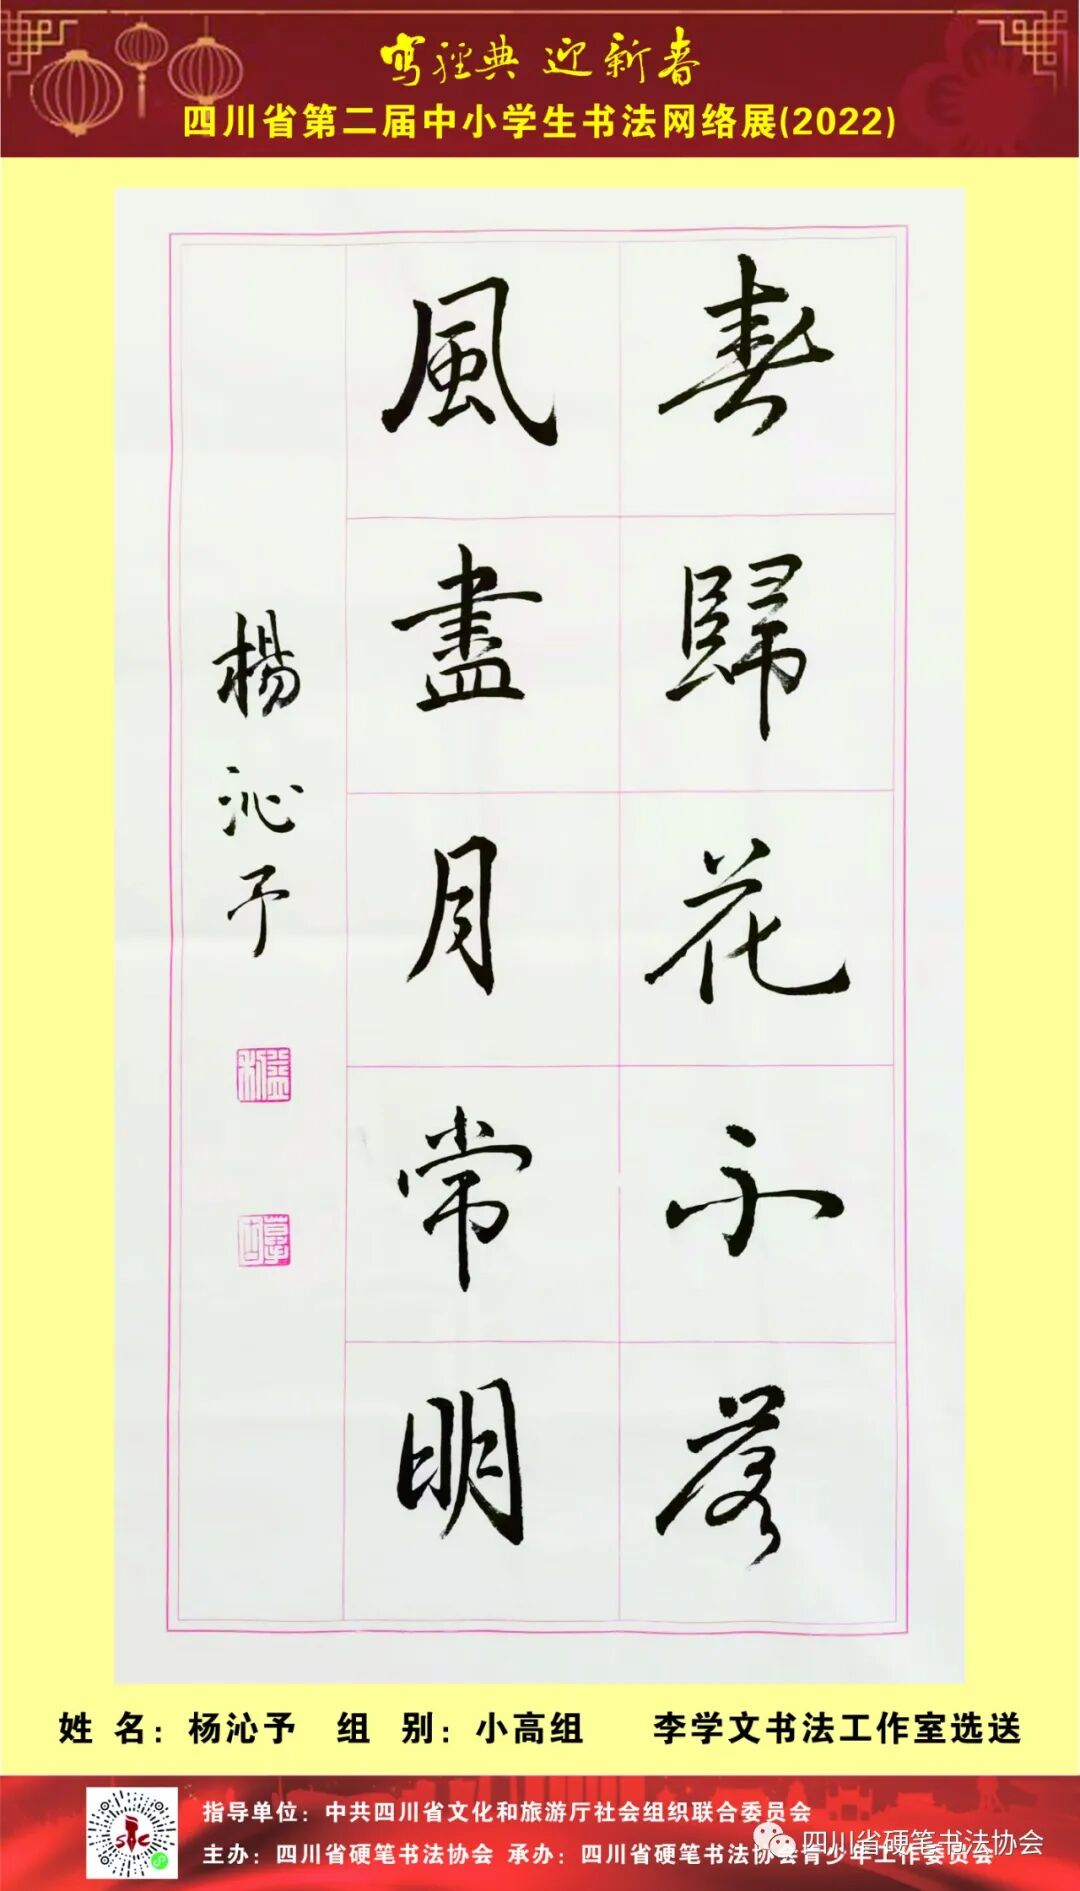 写經典 迎新春
四川省第二届中小学生书法网络展(2022)
春歸花不落
風盡月常明
楊沁予
姓 名：杨沁予 组 别：小高组 李学文书法工作室选送
指导单位：中共四川省文化和旅游厅社会组织联合委员会
主办：四川省硬笔书法协会 承办：四川省硬笔书法协会青少年工作委员会
四川省硬笔书法协会